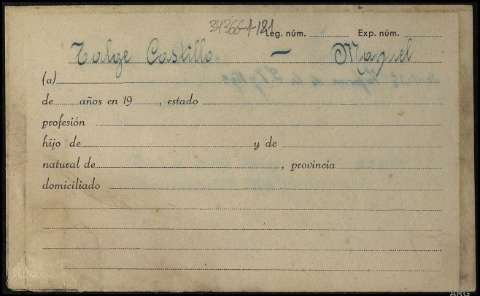 34366-181
Leg. núm. Exp. núm.
Talge Castillo — Manuel
(a)
de años en 19 , estado
profesión
hijo de y de
natural de , provincia
domiciliado